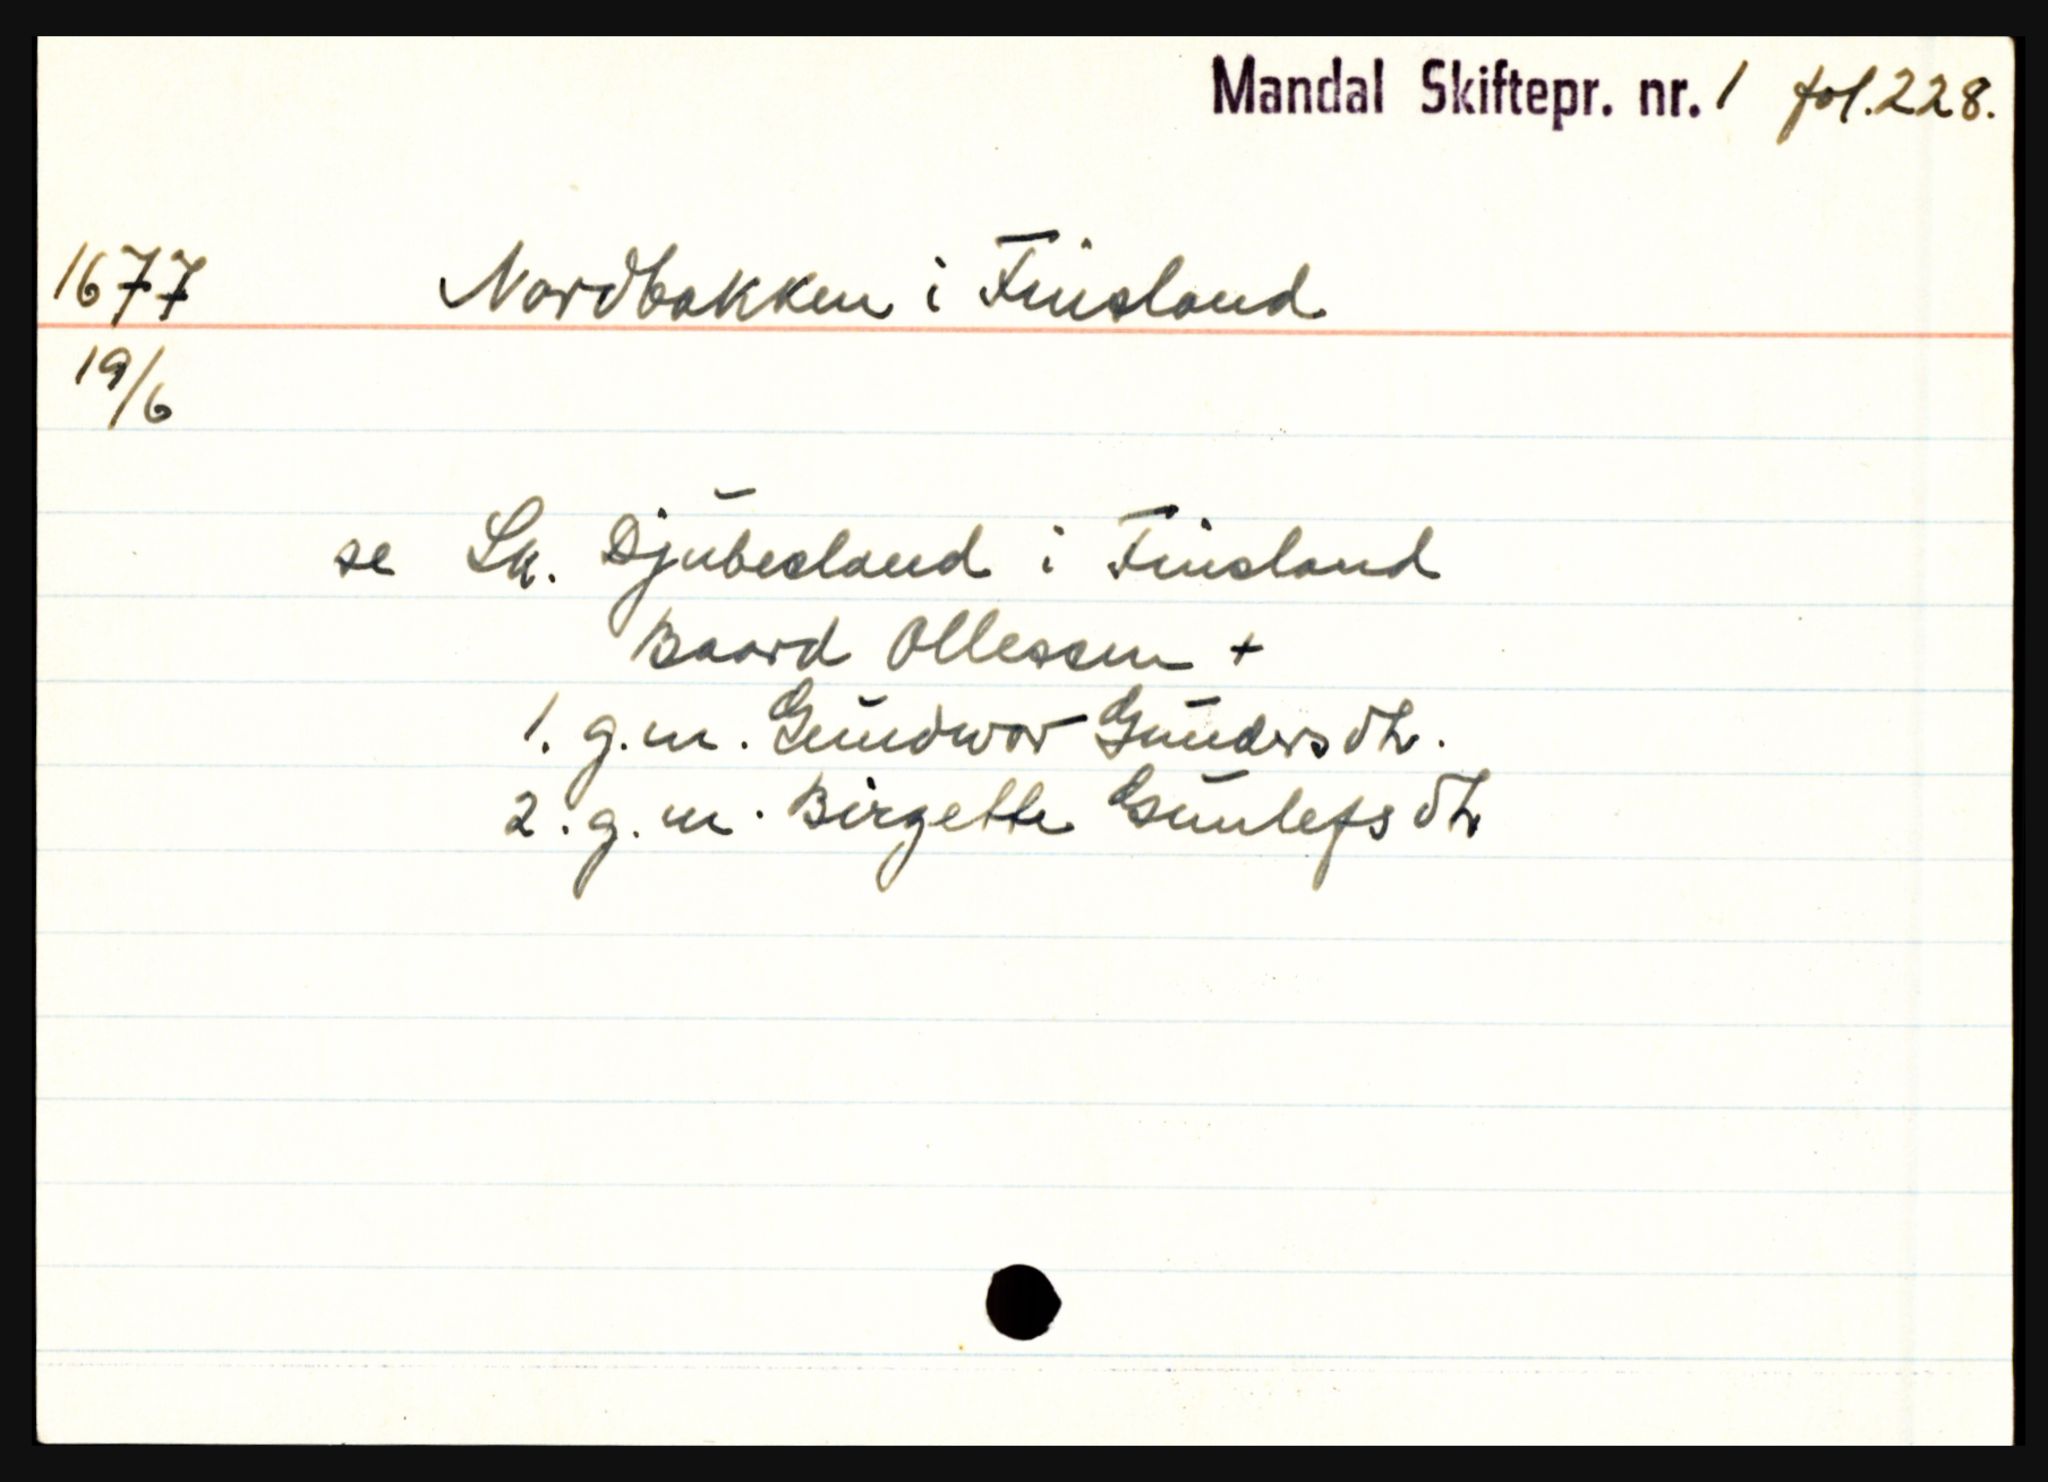 Mandal Skiftepr. nr. 1 fol. 228.
1677 Nordbakken i Finsland
19/6
se Sk. Djubesland i Finsland
Baard Ollessen +
1. g.m. Gundwor Gundersdtr.
2. g.m. Birgette Gunlefsdtr